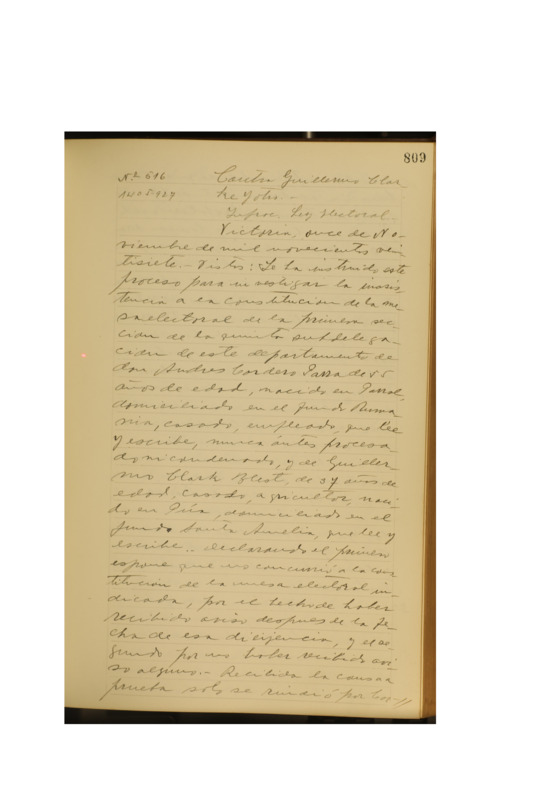 809
Nº 616 Contra Guillermo Clar
ke y otro.-
Infrac. Ley Electoral.
Victoria, once de No-
viembre de mil novecientos vein
tisiete.- Vistos: Se ha instruido este
proceso para investigar la inasis
tencia a la constitucion de la me
sa electoral de la primera sec-
cion de la quinta subdelega-
cion de este departamento de
don Andres Cordero Parra de 55
años de edad, nacido en Parral,
domiciliado en el fundo Ruma
nia, casado, empleado, que lee
y escribe, nunca ántes procesa
do ni condenado, y de Guiller
mo Clark Blest, de 37 años de
edad, casado, agricultor, naci
do en, domiciliado en el
fundo Santa Amelia, que lee y
escribe.. declarando el primero
espone que no concurrió a la con
titucion de la mesa electoral in-
dicada, por el hecho de haber
recibido aviso despues de la fe-
cha de esa dilijencia, y el se-
gundo por no haber recibido avi
so alguno.- Recibida la causa a
prueba solo se rindió por Cor-